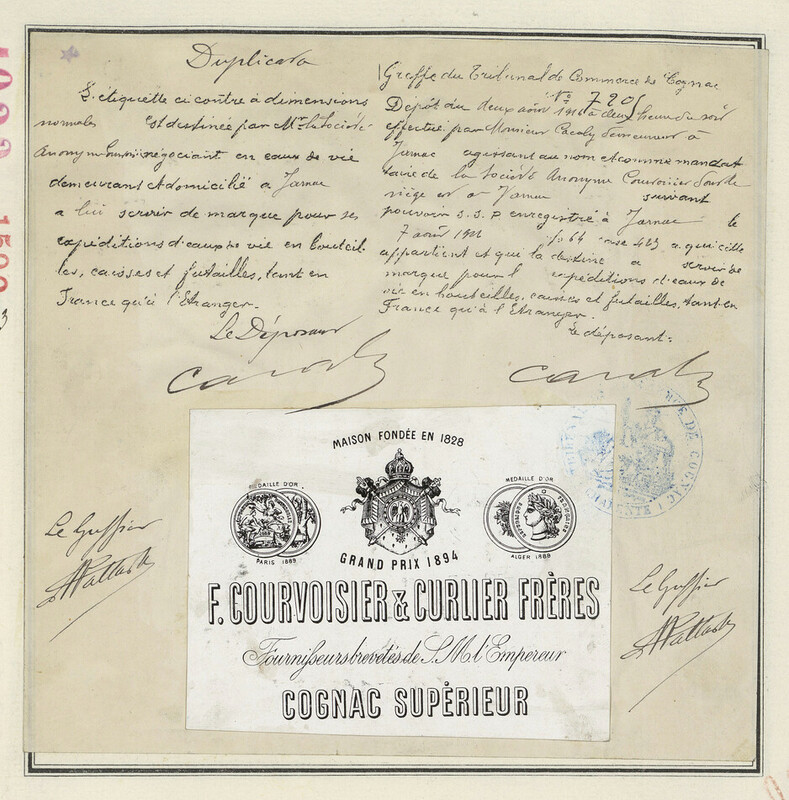 Duplicata
L'étiquette ci contre à dimensions
normales est destinée par Mr la Société
Anonyme négociant en eaux de vie
demeurant et domicilié à Jarnac
a lui servir de marque pour ses
expéditions d'eaux de vie en bouteil-
les, caisses et futailles, tant en
France qu'à l'Etranger.
Le Déposant
Greffe du Tribunal de Commerce de Cognac
No 7205
Dépôt du deux août à deux heure du soir
effectué par Monsieur demeurant à
Jarnac agissant au nom et comme mandat
taire de la Société Anonyme Courvoisier dont le
siège est à Jarnac suivant
pouvoir S.S.P. enregistré à Jarnac le
7 août fo 64 case 423 a qui elle
appartient et qui la destine a servir de
marque pour l expéditions d'eaux de
vie en bouteilles, caisses et futailles, tant en
France qu'à l'Etranger.
Le déposant:
MAISON FONDÉE EN 1828
MEDAILLE D'OR
PARIS 1889
GRAND PRIX 1894
MEDAILLE D'OR
ALGER 1889
F. COURVOISIER & CURLIER FRÈRES
Fournisseurs brevetés de S.M. l'Empereur
COGNAC SUPÉRIEUR
Le Greffier
Le Greffier
DE COGNAC
CHARENTE